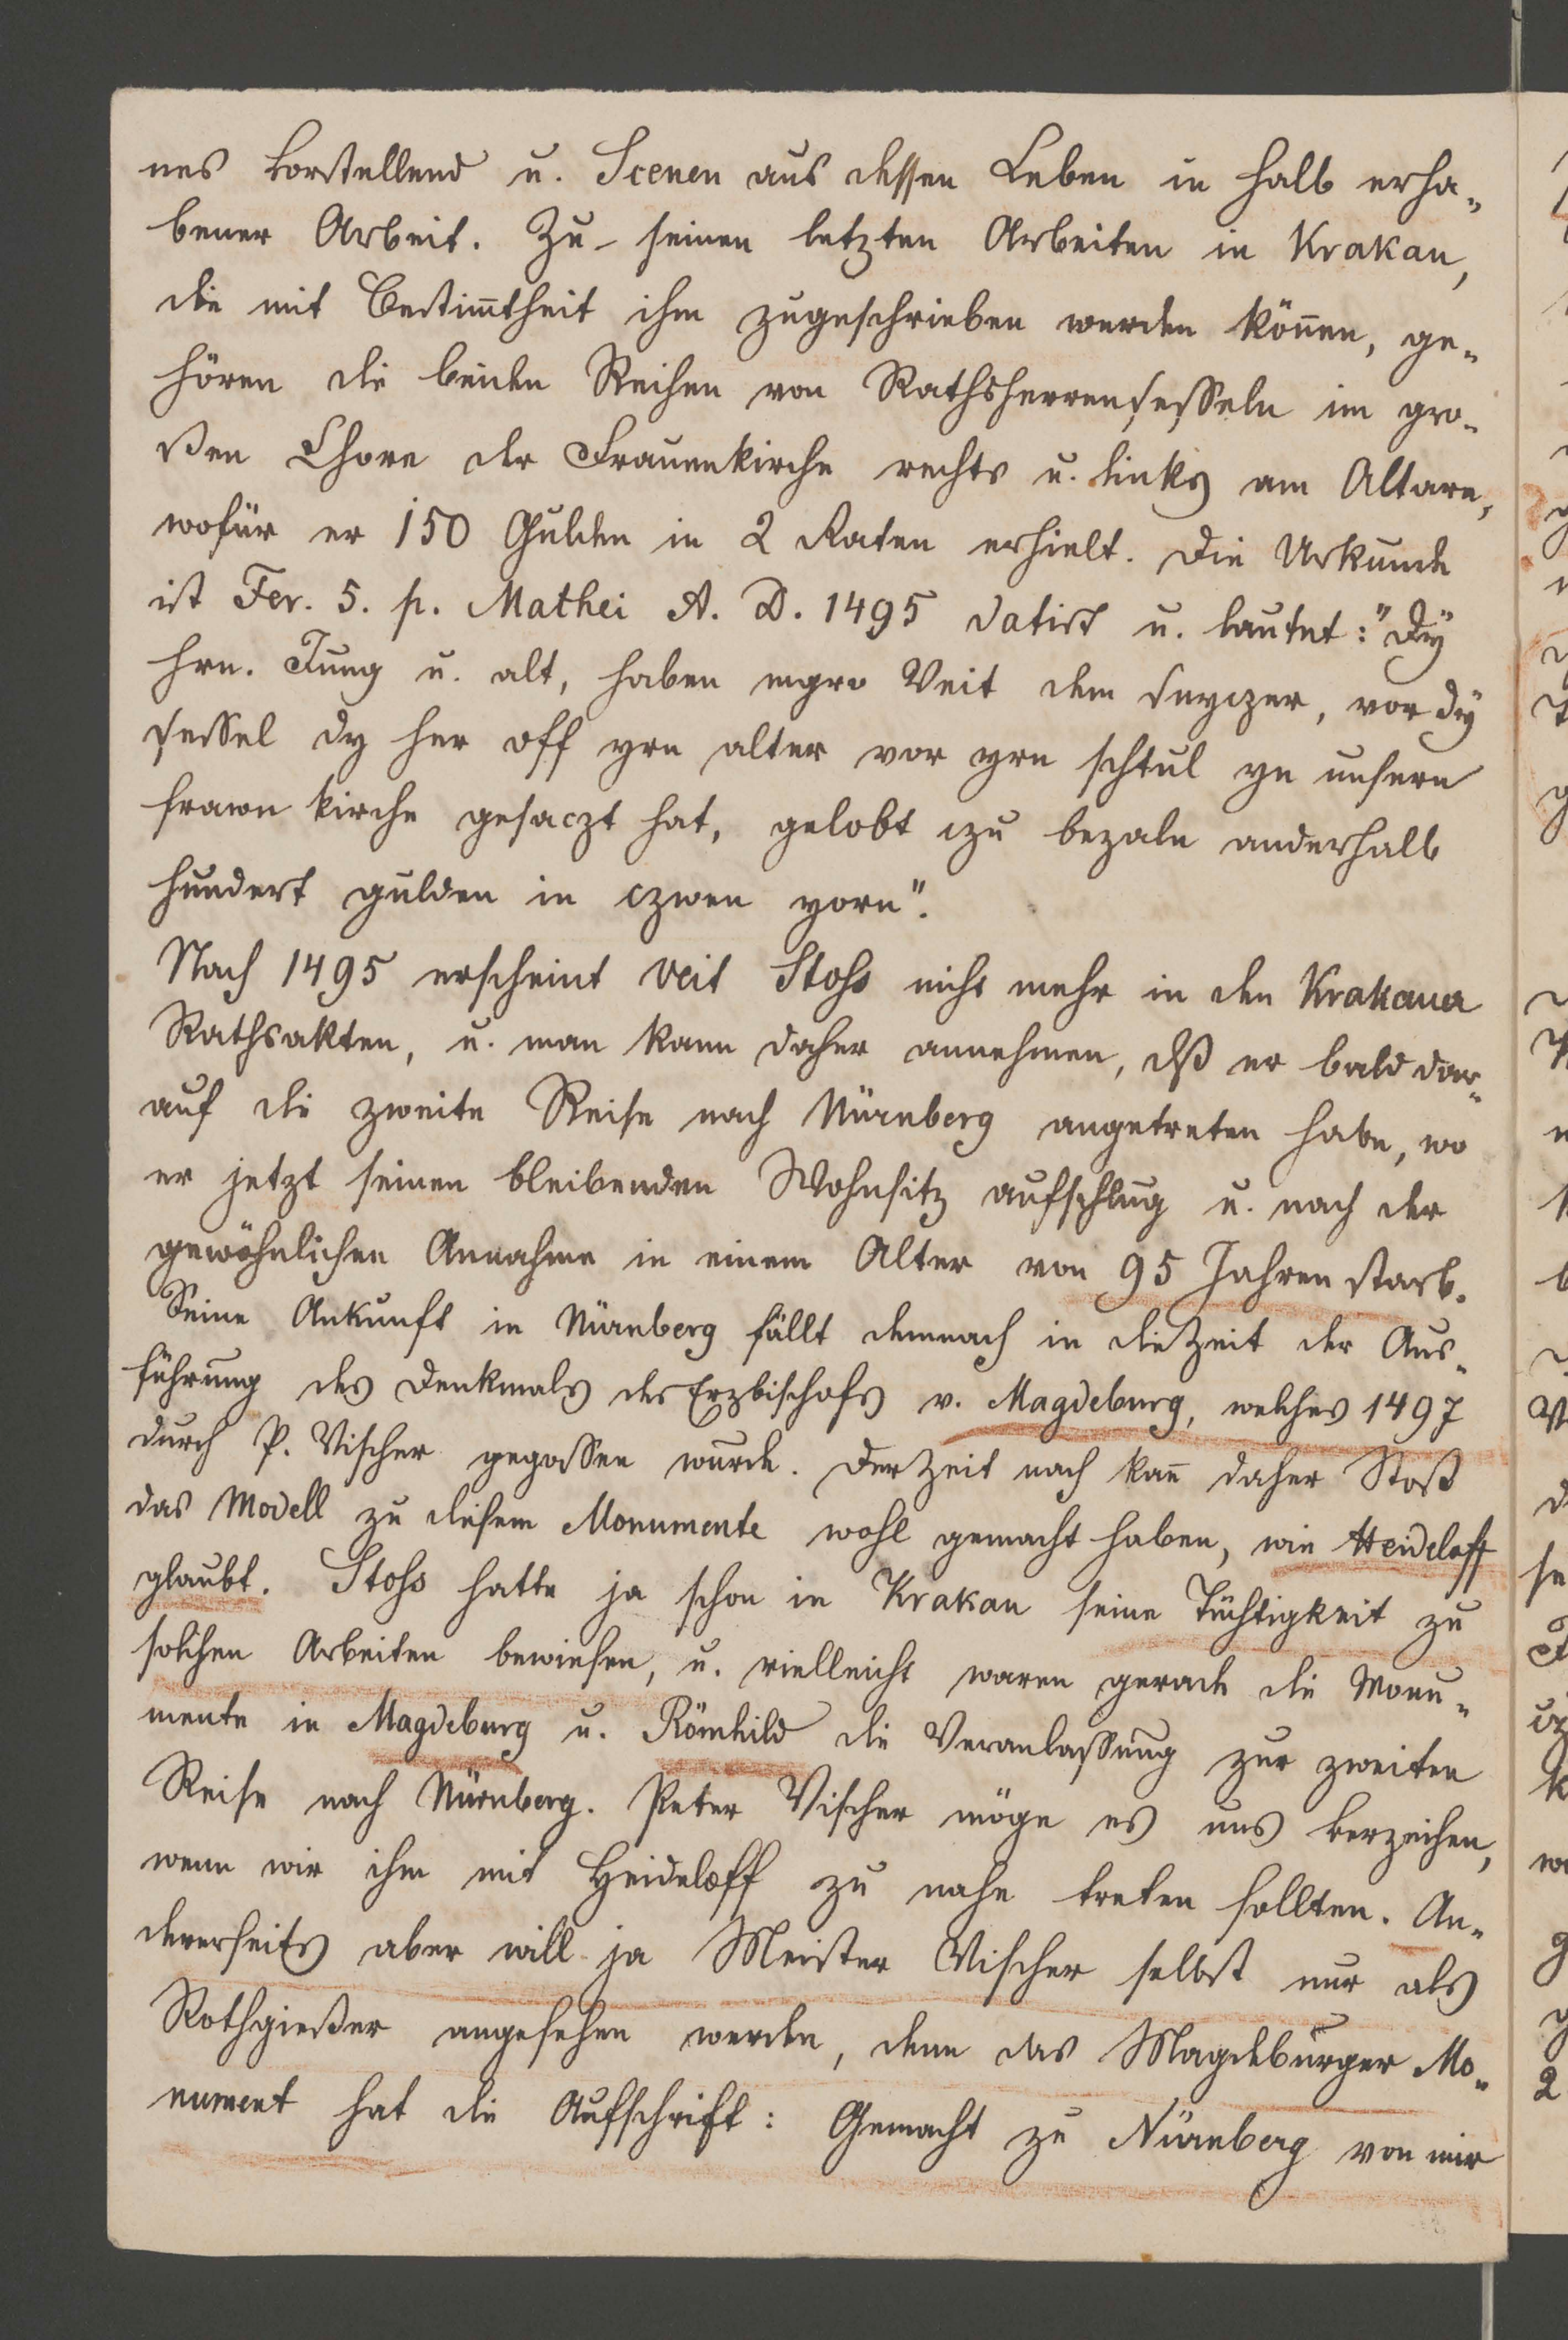 nes vorstellend u. Scenen aus dessen Leben in halb erha-
bener Arbeit. Zu seinen letzten Arbeiten in Krakau,
die mit Bestim̄theit ihm zugeschrieben werden kön̄en, ge-
hören die beiden Reihen von Rathsherrensesseln im gro-
ßen Chore der Frauenkirche rechts u. links am Altare,
wofür er 150 Gulden in 2 Raten erhielt. Die Urkunde
ist Fer. 5. p. Mathei A. D. 1495 datirt u. lautet: "Dÿ
hrn. Jung u. alt, haben mgro Veit dem snyczer, vor dÿ
sessel dy her off yrn alter vor yrn schtul yn unsern
frawn kirche gesaczt hat, gelobt czu bezaln anderhalb
hundert gulden in czwen yorn".
Nach 1495 erscheint Veit Stohs nicht mehr in den Krakauer
Rathsakten, u. man kann daher annehmen, dß er bald dar-
auf die zweite Reise nach Nürnberg angetreten habe, wo
er jetzt seinen bleibenden Wohnsitz aufschlug u. nach der
gewöhnlichen Annahme in einem Alter von 95 Jahren starb.
Seine Ankunft in Nürnberg fällt demnach in die Zeit der Aus-
führung des Denkmals des Erzbischofs v. Magdeburg, welches 1497
durch P. Vischer gegossen wurde. Der Zeit nach kan̄ daher Stoß
das Modell zu diesem Monumente wohl gemacht haben, wie Heideloff
glaubt. Stohs hatte ja schon in Krakau seine Tüchtigkeit zu
solchen Arbeiten bewiesen, u. vielleicht waren gerade die Monu-
mente in Magdeburg u. Römhild die Veranlassung zur zweiten
Reise nach Nürnberg. Peter Vischer möge es uns verzeihen,
wenn wir ihm mit Heideloff zu nahe treten sollten. An-
dererseits aber will ja Meister Vischer selbst nur als
Rothgießer angesehen werden, denn das Magdeburger Mo-
nument hat die Aufschrift: Gemacht zu Nürnberg von mir